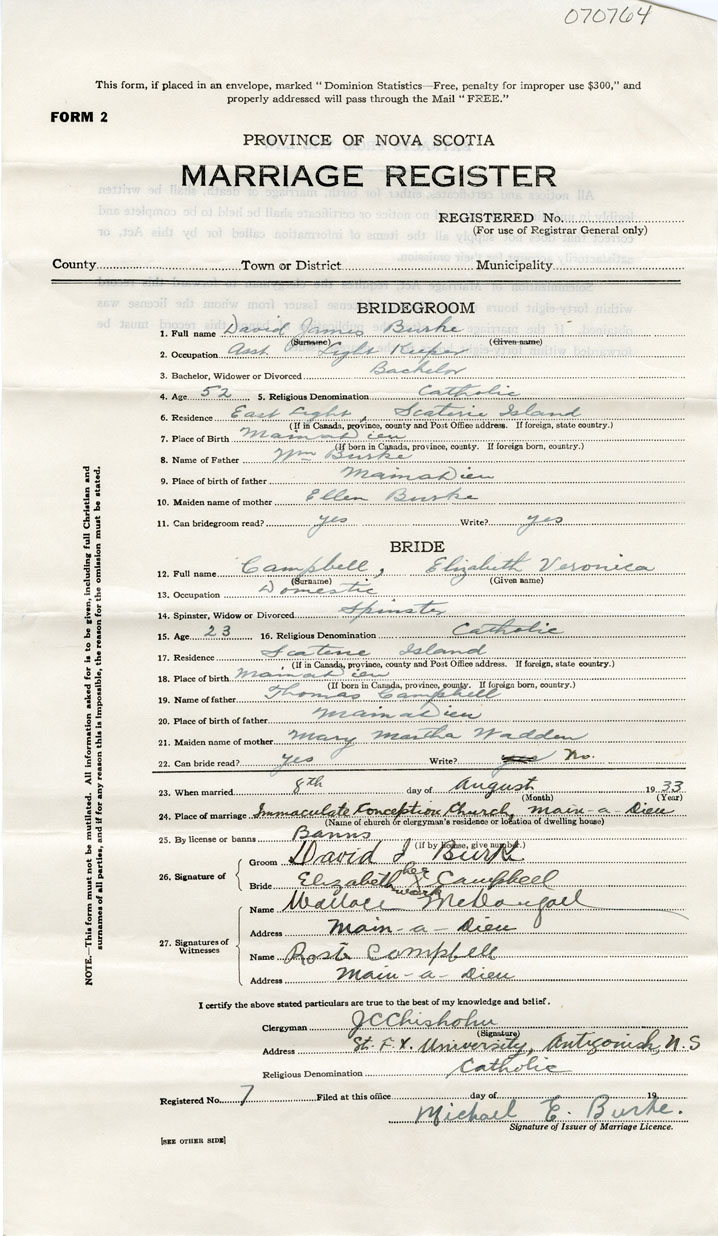 070764
This form, if placed in an envelope, marked "Dominion Statistics—Free, penalty for improper use $300," and
properly addressed will pass through the Mail "FREE."
FORM 2
PROVINCE OF NOVA SCOTIA
MARRIAGE REGISTER
REGISTERED No.
(For use of Registrar General only)
County Town or District Municipality
BRIDEGROOM
1. Full name David James Burke
(Surname) (Given name)
2. Occupation Asst. Light Keeper
3. Bachelor, Widower or Divorced Bachelor
4. Age 52 5. Religious Denomination Catholic
6. Residence East Light, Scaterie Island
(If in Canada, province, county and Post Office address. If foreign, state country.)
7. Place of Birth Mainadieu
(If born in Canada, province, county. If foreign born, country.)
8. Name of Father Wm Burke
9. Place of birth of father Mainadieu
10. Maiden name of mother Ellen Burke
11. Can bridegroom read? yes Write? yes
BRIDE
12. Full name Campbell, Elizabeth Veronica
(Surname) (Given name)
13. Occupation Domestic
14. Spinster, Widow or Divorced Spinster
15. Age 23 16. Religious Denomination Catholic
17. Residence Scaterie Island
(If in Canada, province, county and Post Office address. If foreign, state country.)
18. Place of birth Mainadieu
(If born in Canada, province, county. If foreign born, country.)
19. Name of father Thomas Campbell
20. Place of birth of father Mainadieu
21. Maiden name of mother Mary Martha Wadden
22. Can bride read? yes Write? yes No.
23. When married 8th day of August 1933
(Month) (Year)
24. Place of marriage Immaculate Conception Church, Main-a-Dieu
(Name of church or clergyman's residence or location of dwelling house)
25. By license or banns Banns
(If by license, give number.)
26. Signature of
Groom David J Burke
Bride Elizabeth her X mark Campbell
27. Signatures of Witnesses
Name Wallace McDougall
Address Main-a-Dieu
Name Rose Campbell
Address Main-a-Dieu
I certify the above stated particulars are true to the best of my knowledge and belief.
Clergyman J C Chisholm
(Signature)
Address St. F. X. University, Antigonish, N.S
Religious Denomination Catholic
Registered No. 7 Filed at this office day of 19
Michael E. Burke.
Signature of Issuer of Marriage Licence.
[SEE OTHER SIDE]
NOTE.—This form must not be mutilated. All information asked for is to be given, including full Christian and
surnames of all parties, and if for any reason this is impossible, the reason for the omission must be stated.